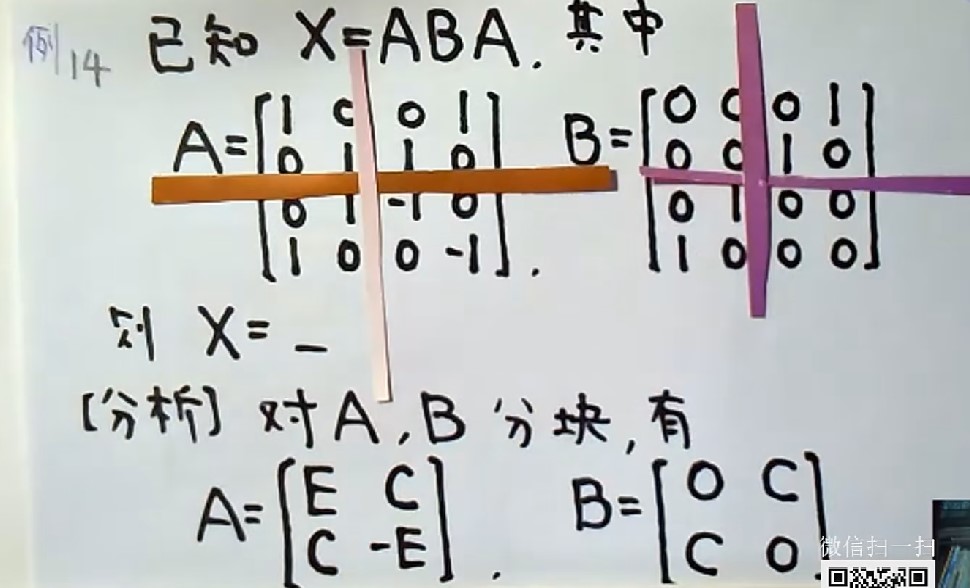 例14 已知 X=ABA. 其中
A=[1 0 0 1 B=[0 0 0 1
0 1 1 0 0 0 1 0
0 1 -1 0 0 1 0 0
1 0 0 -1]. 1 0 0 0]
则 X= _
[分析] 对A,B 分块,有
A=[E C B=[O C
C -E]. C O]
微信扫一扫